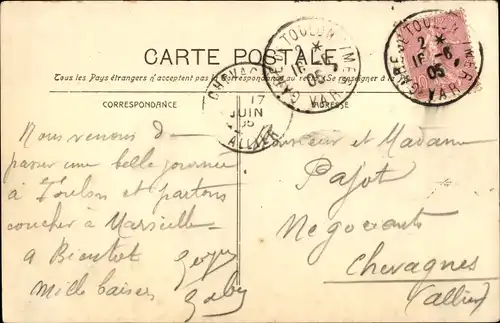 CARTE POSTALE
Tous les Pays étrangers n'acceptent pas la Correspondance au recto. Se renseigner à la
CORRESPONDANCE
ADRESSE
GARE DE TOULON VAR
2 *
16-6
05
GARE DE TOULON VAR
2 *
16-6
05
CHEVAGNES
17
JUIN
05
ALLIER
Nous venons de
passer une belle journée
à Toulon et partons
coucher à Marseille
à Bientôt
Mille baisers Gaby
Monsieur et Madame
Pajot
Négociants
Chevagnes
(Allier)